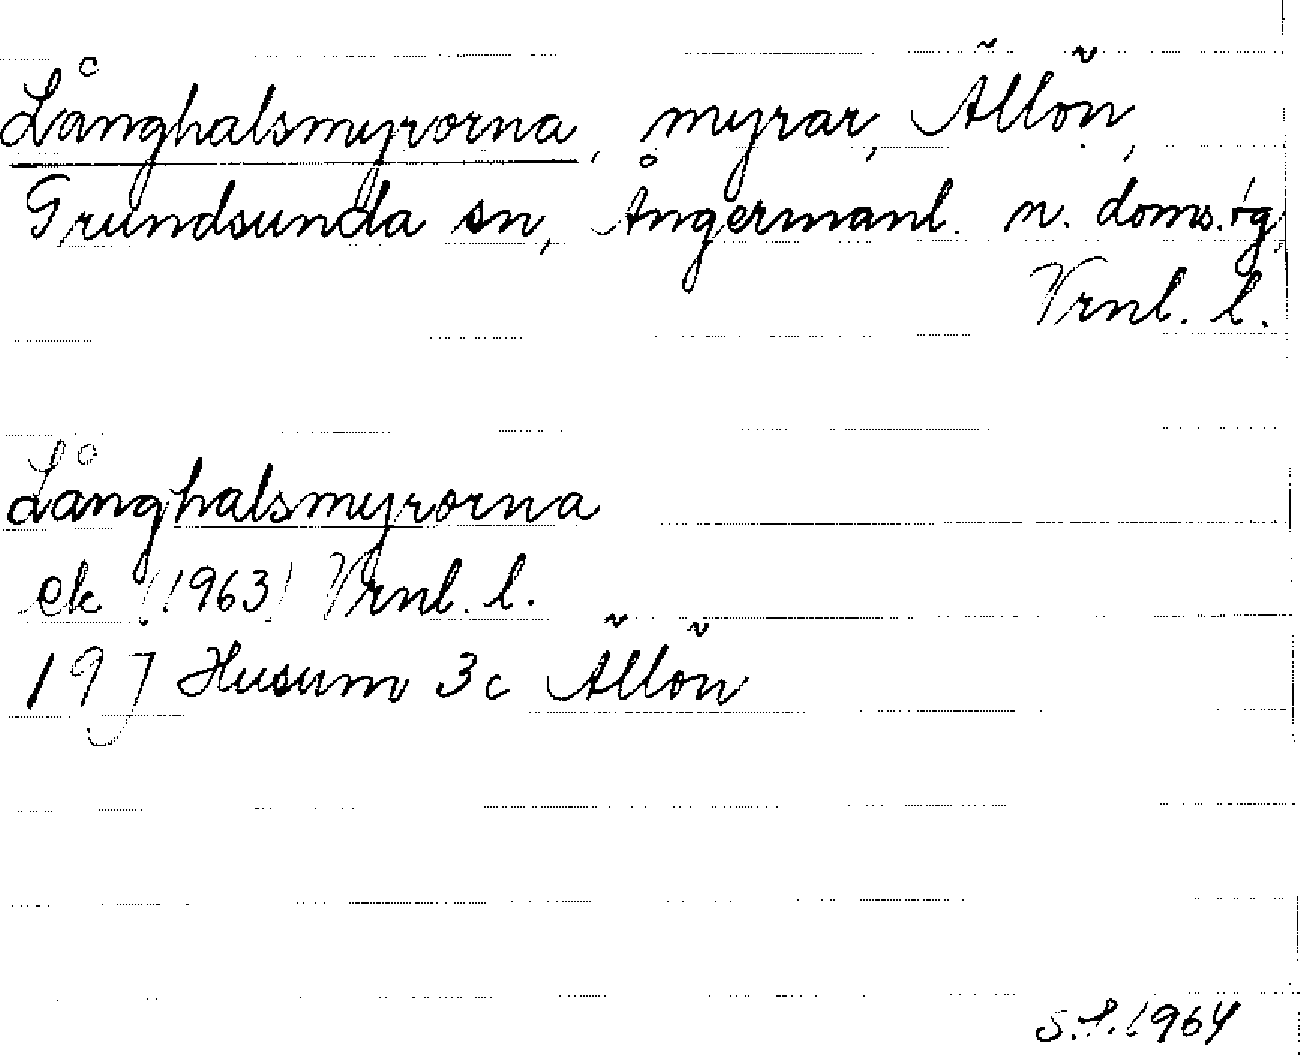 Långhalsmyrorna, myrar, Ällön,
Grundsunda sn, Ångermanl. n. doms.
Vrnl. l.
Långhalsmyrorna
ek (1963) Vrnl. l.
19 J Husum 3c Ällön
S.P. 1964